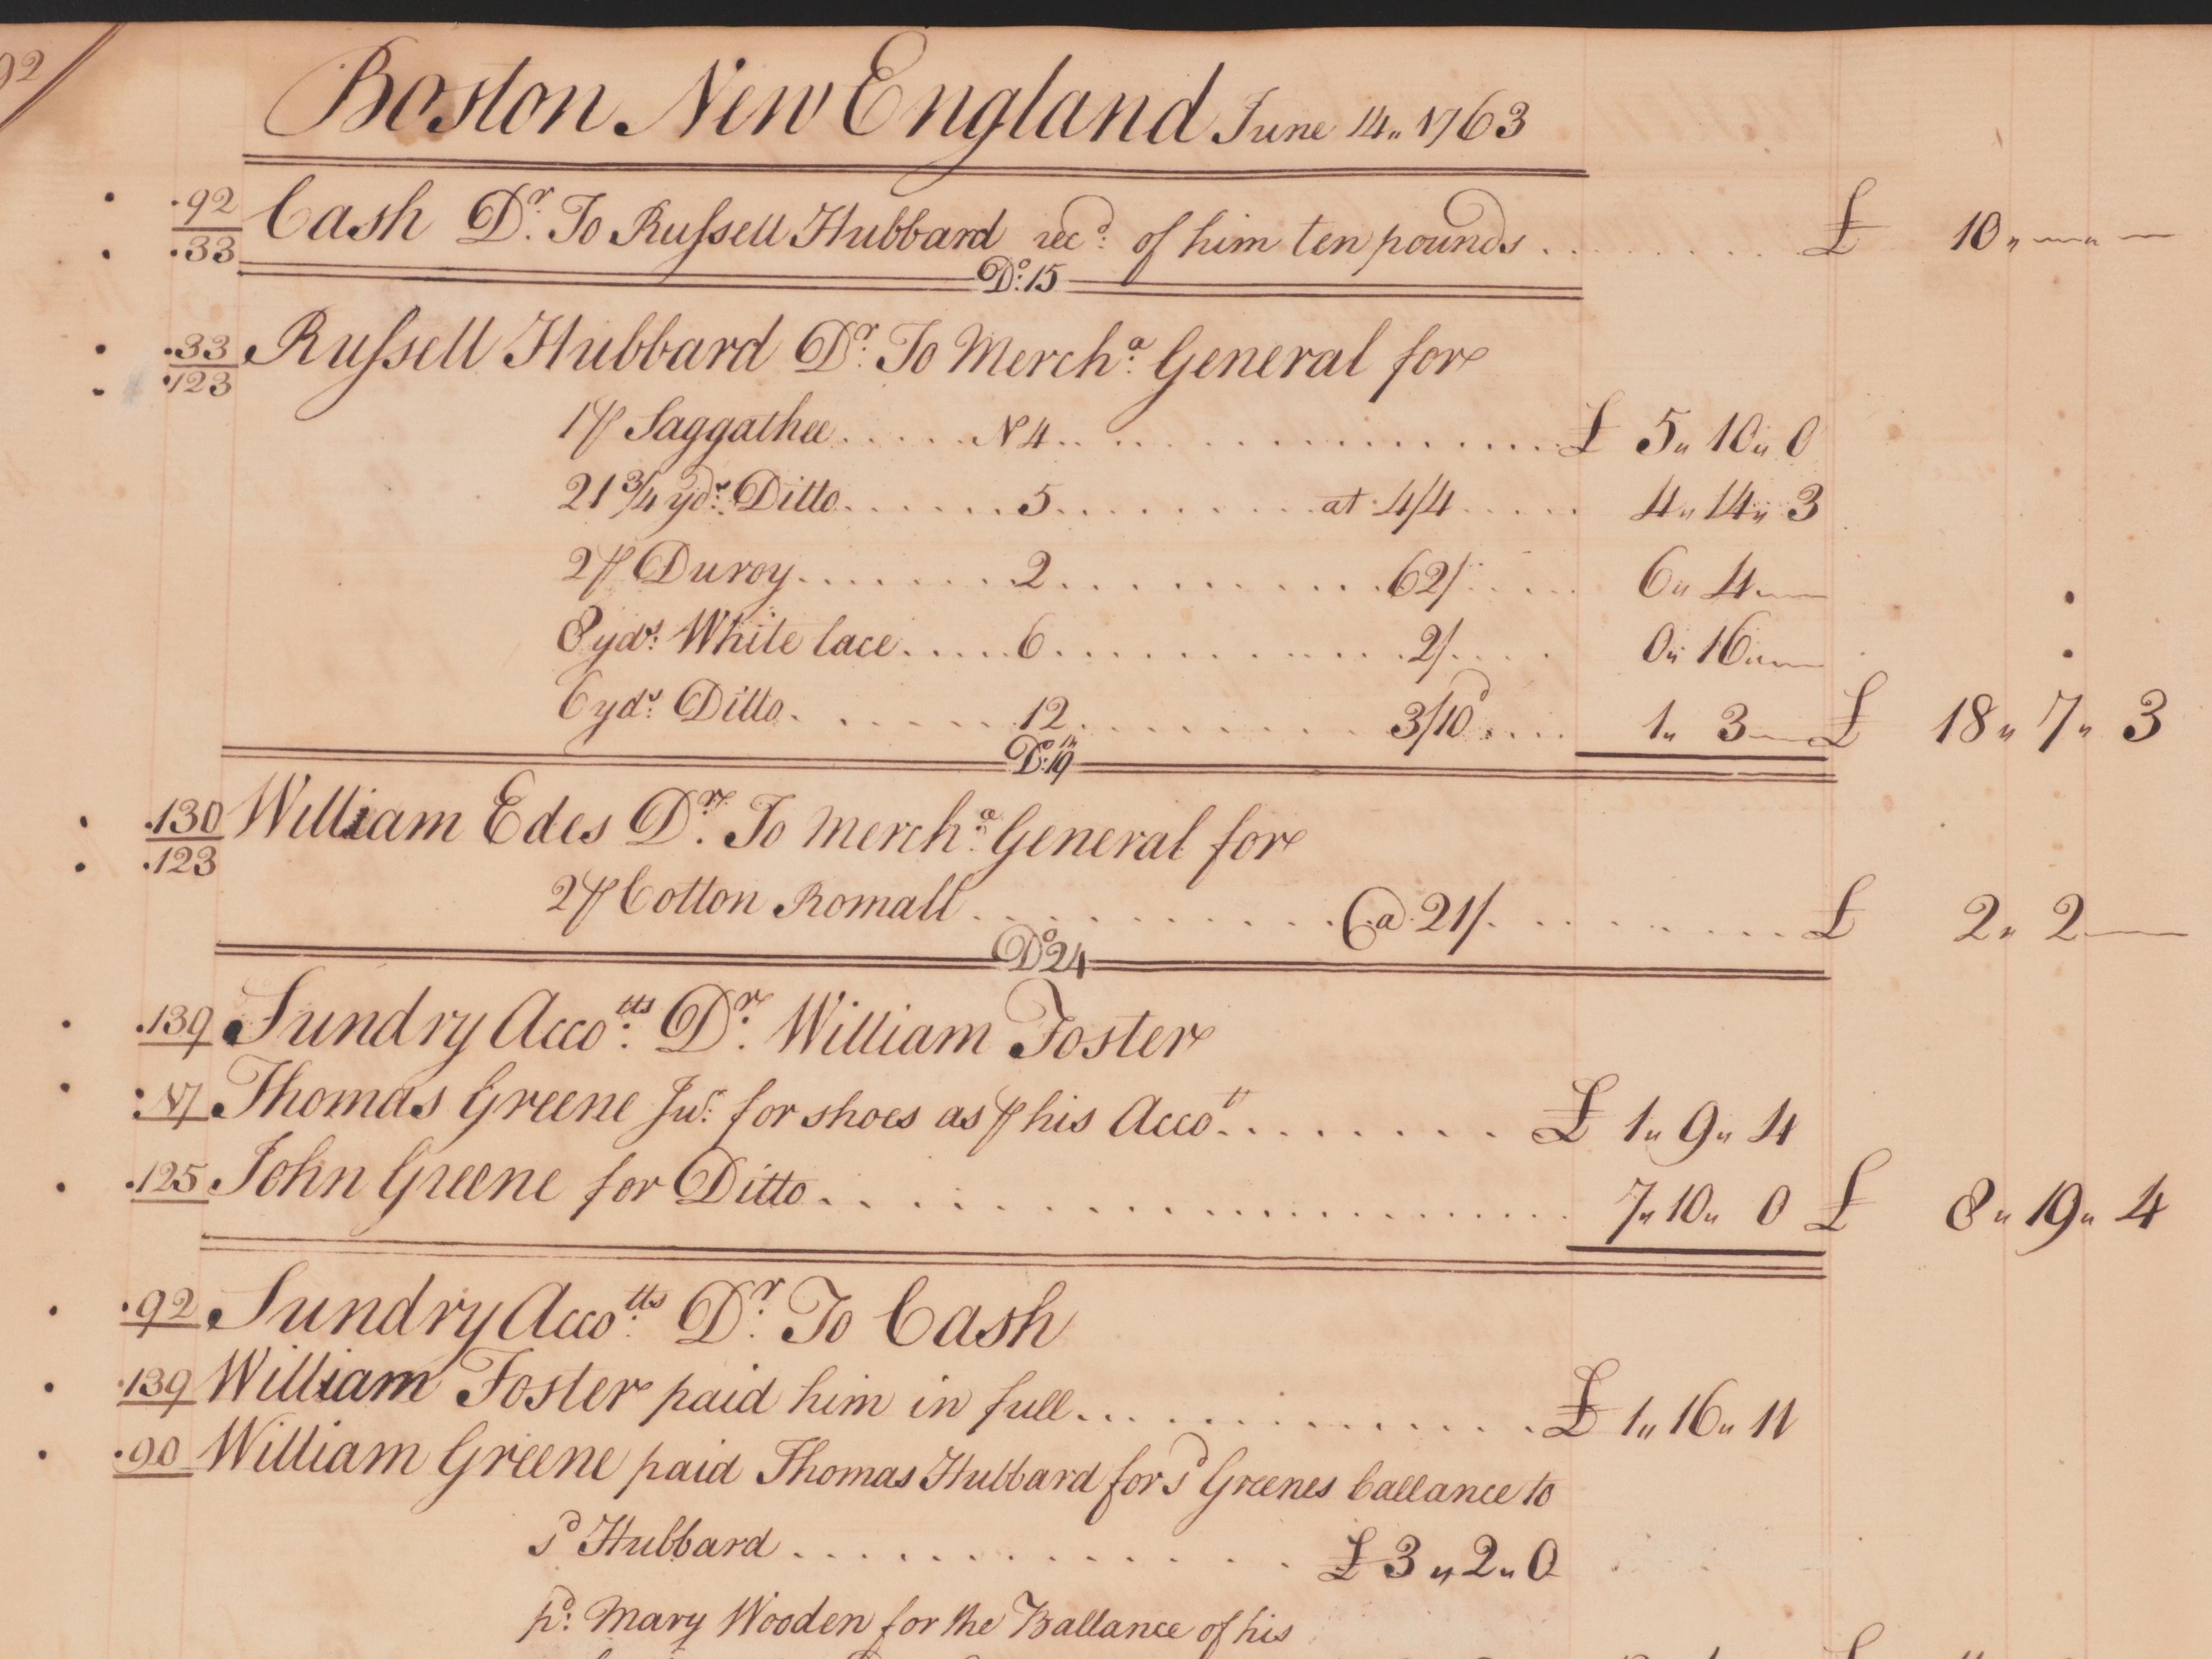 92
Boston New England June 14 1763
.92 Cash Dr. To Russell Hubbard recd. of him ten pounds . . . . . . . £ 10 " — " —
.33
Do. 15
.33 Russell Hubbard Dr. To Mercha. General for
.123
1 p Saggathee . . . . . No 4 . . . . . . . . . . . . £ 5 " 10 " 0
21 3/4 yds. Ditto . . . . . . 5 . . . . . . . . at 4/4 . . . . 4 " 14 " 3
2 p Duroy . . . . . . . 2 . . . . . . . . . . 62/ . . . . 6 " 4 " —
8 yds. White lace . . . . . 6 . . . . . . . . . . 2/ . . . . 0 " 16 " —
6 yds. Ditto . . . . . . . 12 . . . . . . . . . 3/10d . . . . 1 " 3 — £ 18 " 7 " 3
Do. 19th
.130 William Edes Dr. To Mercha. General for
.123
2 p Cotton Romall . . . . . . . . . . @ 21/ . . . . . . . . £ 2 " 2 —
Do 24
.139 Sundry Accotts. Dr. William Foster
.17 Thomas Greene Junr. for shoes as p his Accott. . . . . . . . £ 1 " 9 " 4
.125 John Greene for Ditto . . . . . . . . . . . . . . . . 7 " 10 " 0 £ 8 " 19 " 4
.92 Sundry Accotts. Dr. To Cash
.139 William Foster paid him in full . . . . . . . . . . . . £ 1 " 16 " 11
.90 William Greene paid Thomas Hubbard for sd Greenes ballance to
sd Hubbard . . . . . . . . . . . . . £ 3 " 2 " 0
pd. Mary Wooden for the Ballance of his